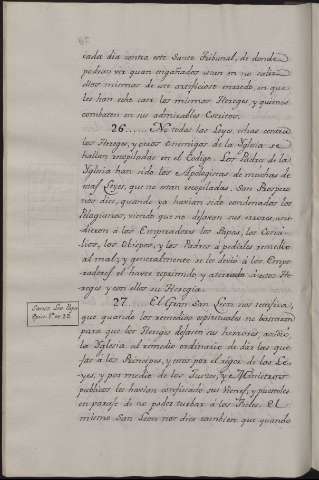 cada dia contra este Santo Tribunal, de donde
podran ver quan engañados estan en no salir
ellos mismos de este artificioso enredo, en que
les han echo caer los mismos Hereges y quienes
combaten en sus admirables Escritos.
26...... No todas las Leyes, echas contra
los Hereges, y otros Enemigos de la Yglesia se
hallan recopiladas en el Codigo. Los Padres de la
Yglesia han sido los Apologistas de muchas de
estas Leyes, que no estan recopiladas. San Prospero
nos dice, quando ya havian sido condenados los
Pelagianos, viendo que no dejaron sus errores, acu-
dieron à los Emperadores los Papas, los Conci-
lios, los Obispos, y los Padres à pedirles remedio
al mal; y generalmente se les devió à los Empe-
radores el haver reprimido y aterrado à estos He-
reges y con ellos su Heregia.
27...... El Gran San Leon nos testifica,
San Leo Papa
que quando los remedios espirituales no bastaron
para que los Hereges dejasen sus herrores, acudió
la Yglesia al remedio ordinario de dar las que-
jas à los Principes, y estos por el rigor de las Le-
yes, y por medio de los Jueces, y Ministros
publicos les havian confiscado sus Vienes, y puestoles
en parage de no poder turbar à los Fieles. El
mismo San Leon nos dice tambien que quando